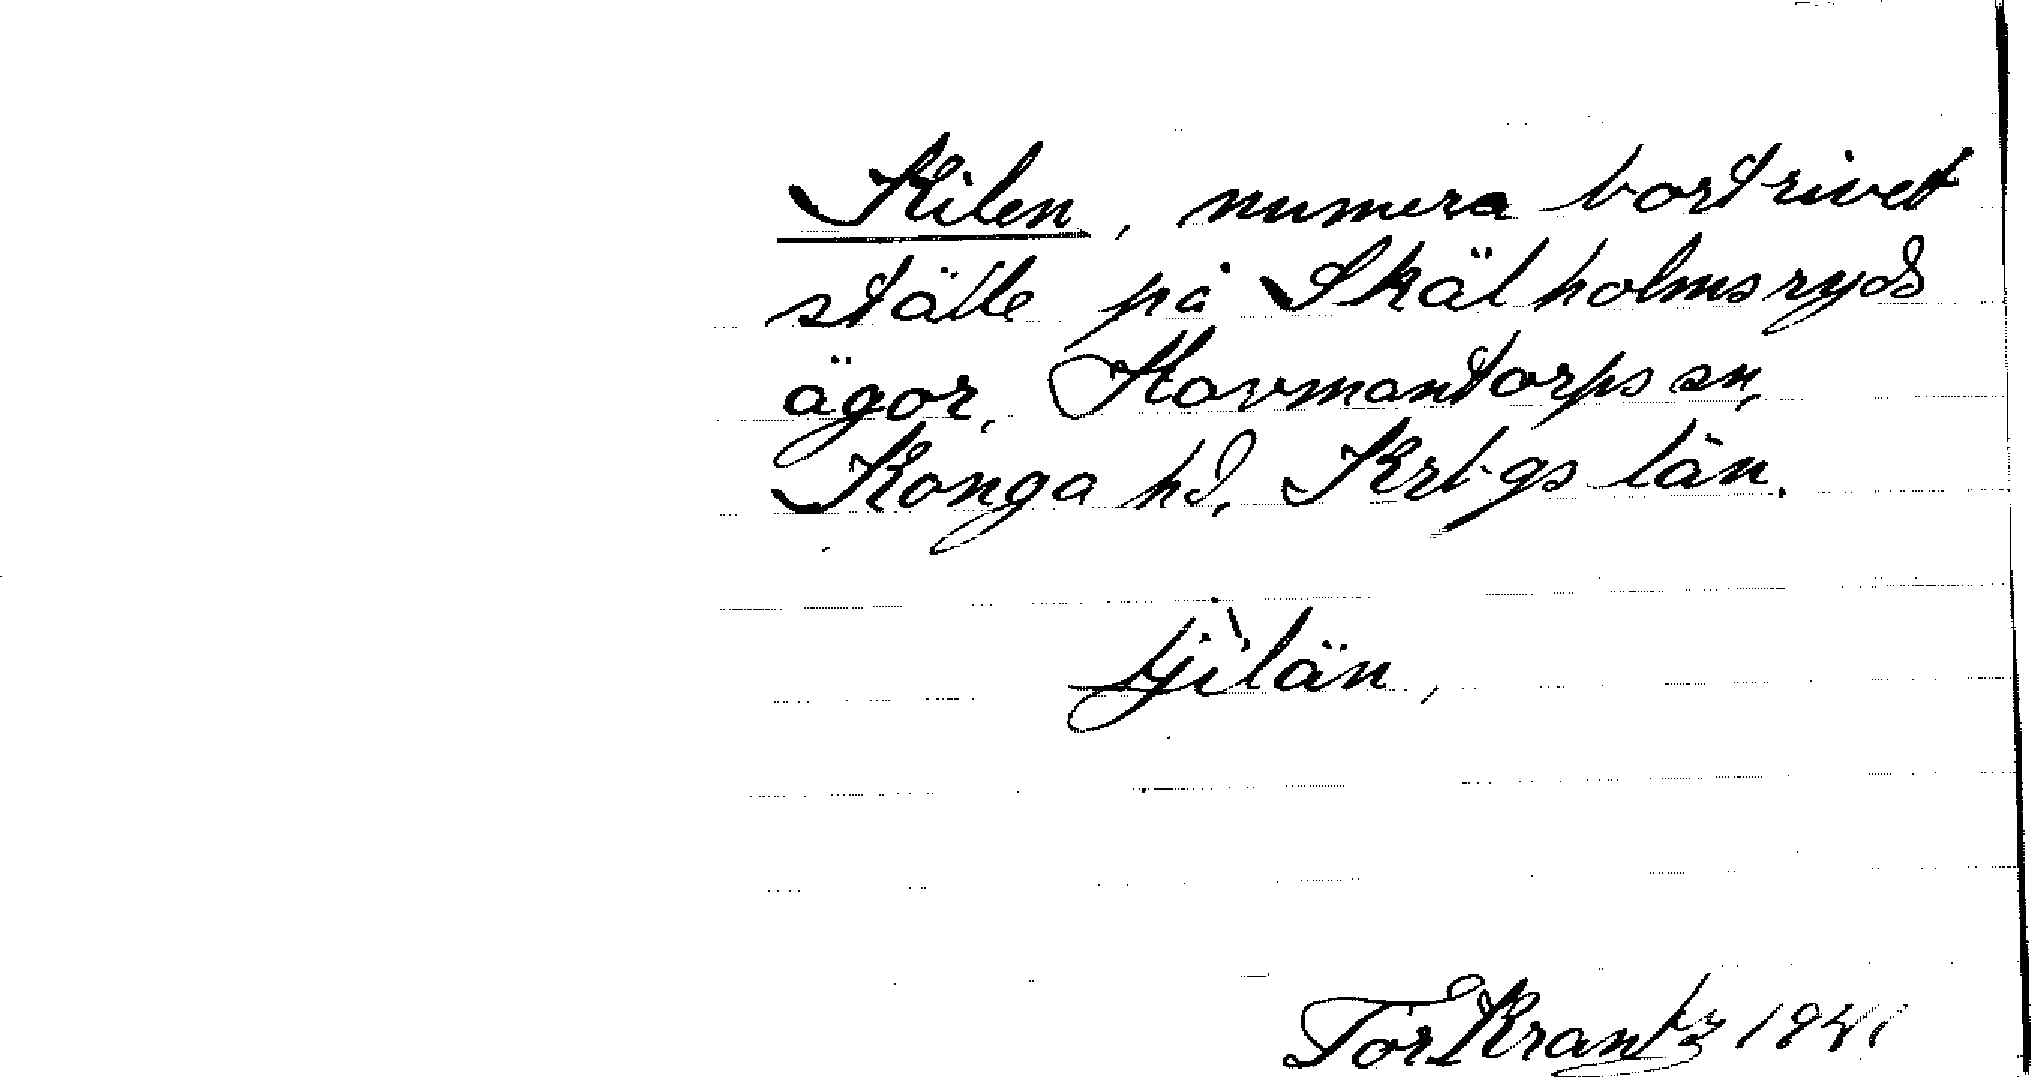 Kilen, numera bortrivet
ställe på Skälholmsryds
ägor, Hovmantorps sn,
Konga hd, Krbgs län.
tjìlän,
Tor Krantz 1941